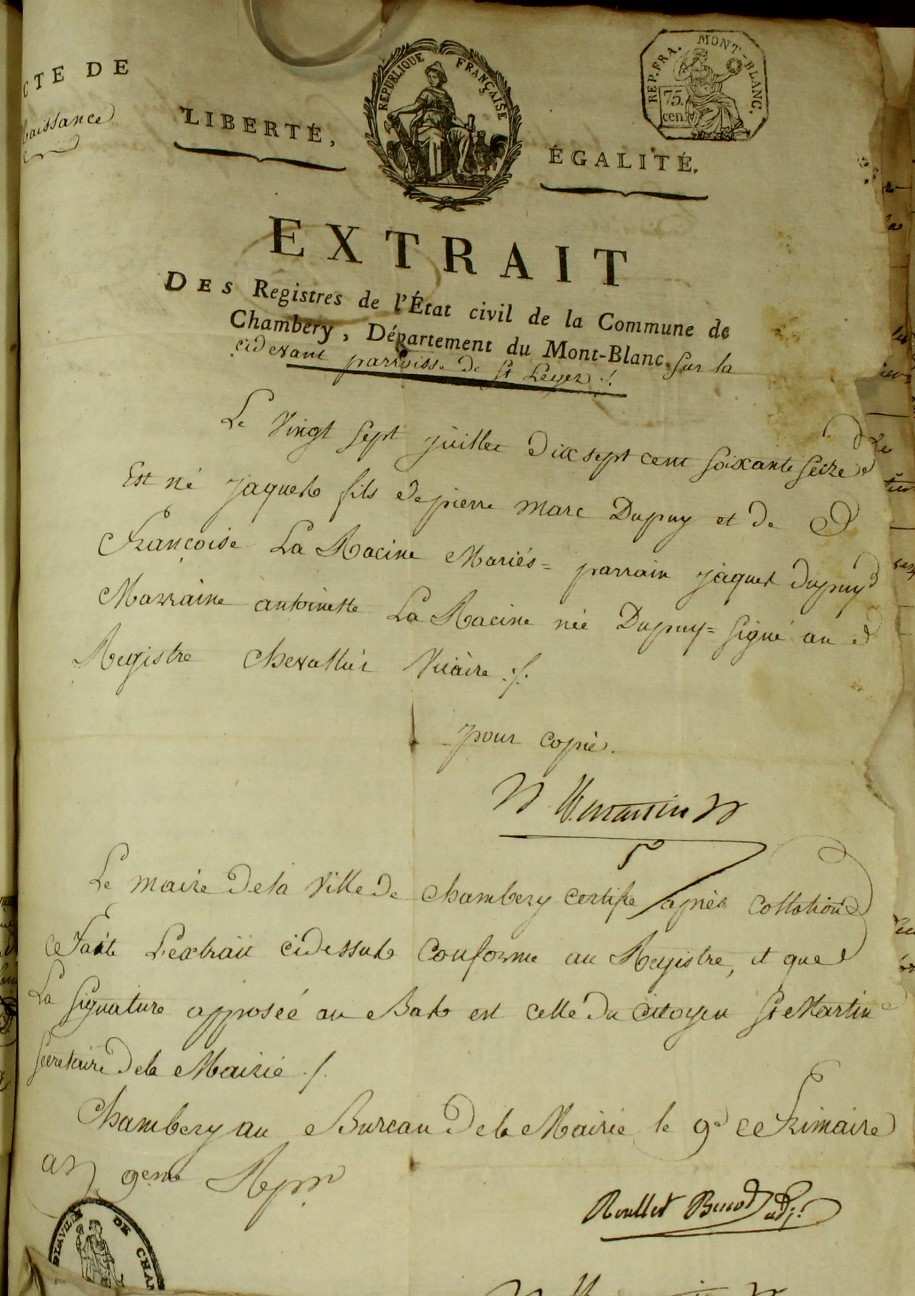 CTE DE
naissance
LIBERTÉ,
RÉPUBLIQUE FRANÇAISE
ÉGALITÉ.
REP. FRA. MONT-BLANC.
75.
cen.
EXTRAIT
DES Registres de l'État civil de la Commune de
Chambery, Département du Mont-Blanc. sur la
cidevant parroisse de St Leger ./.
Le Vingt sept juillet dix sept cent soixante seize
Est né jaques fils de pierre Marc Dupuy et de
Françoise La Racine Mariés = parrain jaques dupuy
Marraine antoinette La Racine née Dupuy = signé au
Registre Chevallier Vicaire ./.
pour copie.
Le maire dela Ville de Chambery certifie après collation
ce faite L'extrait cidessus conforme au Registre, et que
La signature apposée au Bas est celle du Citoyen St Martin
secretaire dela Mairie ./.
Chambery au Bureau dela Mairie le 9e Frimaire
an 9eme
DE LA VILLE DE CHAM